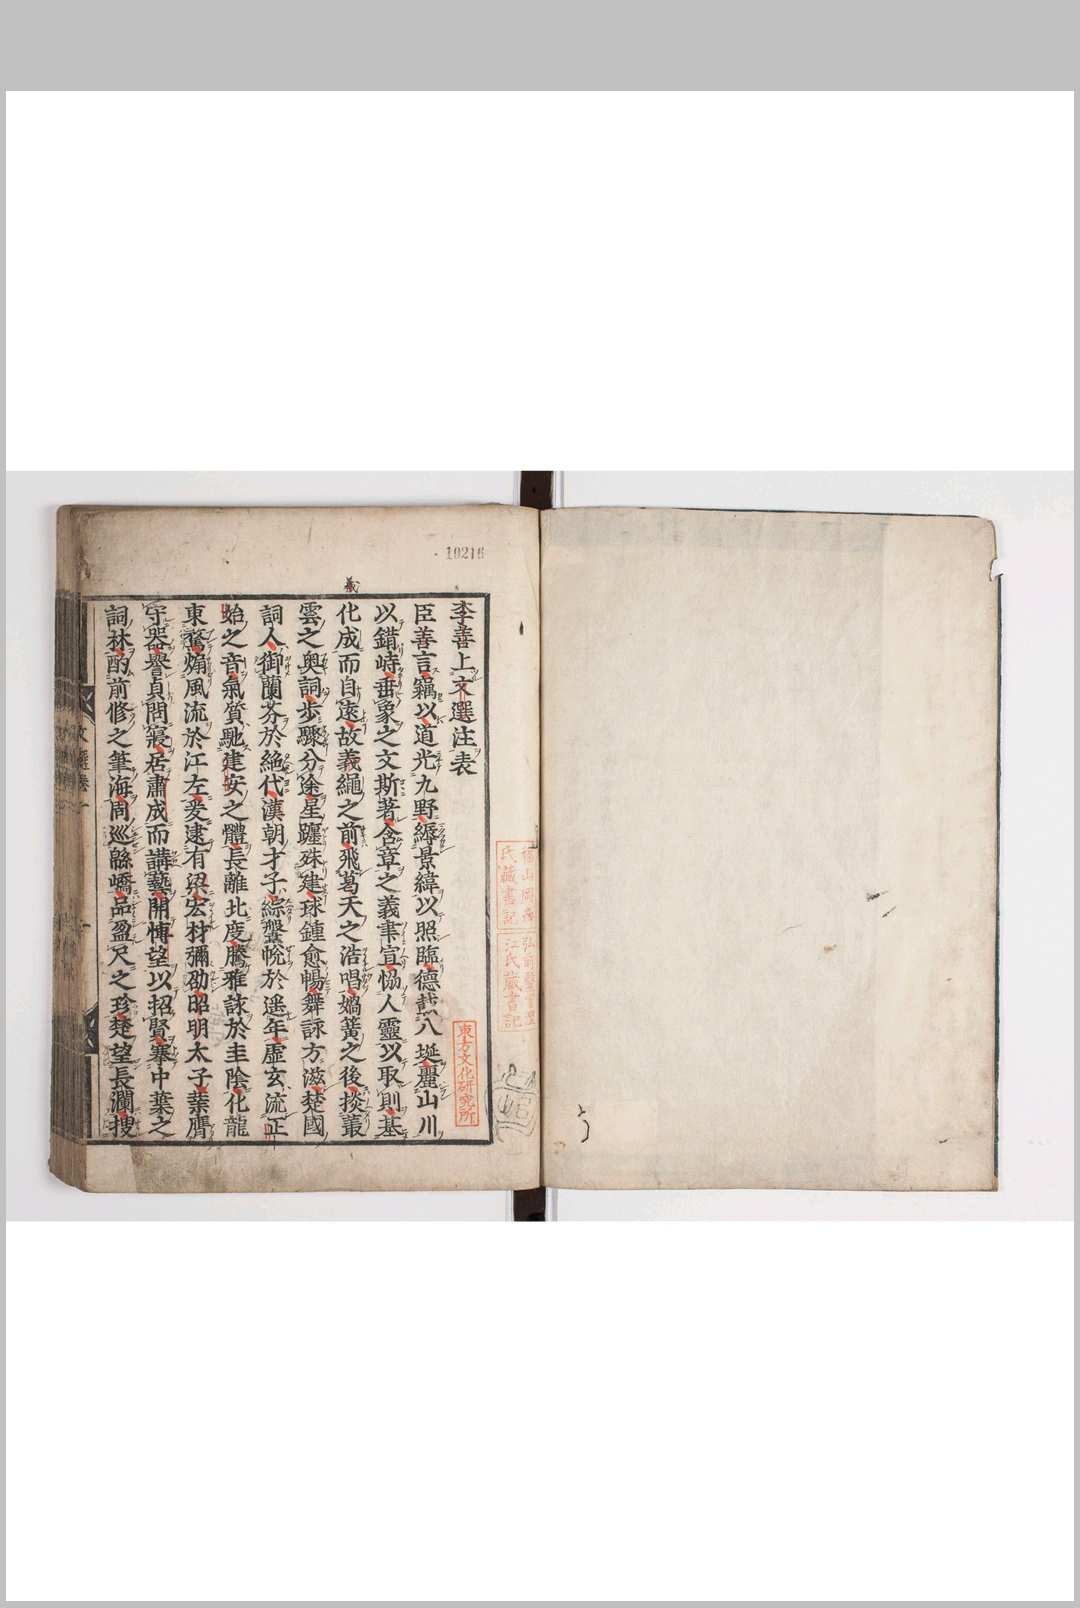 10216
義
李善上文選注表
臣善言竊以道光九野縟景緯以照臨德載八埏麗山川
以錯峙垂象之文斯著含章之義聿宣恊人靈以取則基
化成而自遠故羲繩之前飛葛天之浩唱媧簧之後掞叢
雲之奧詞步驟分途星躔殊建球鍾愈暢舞詠方滋楚國
詞人御蘭芬於絶代漢朝才子綜鞶帨於遥年虛玄流正
始之音氣質馳建安之體長離北度騰雅詠於圭陰化龍
東騖煽風流於江左爰逮有梁宏材彌劭昭明太子業膺
守器譽貞問寢居肅成而講藝開博望以招賢搴中葉之
詞林酌前修之筆海周巡緜嶠品盈尺之珍楚望長瀾搜
文選卷一
東方文化研究所
氏藏書記
江氏藏書記